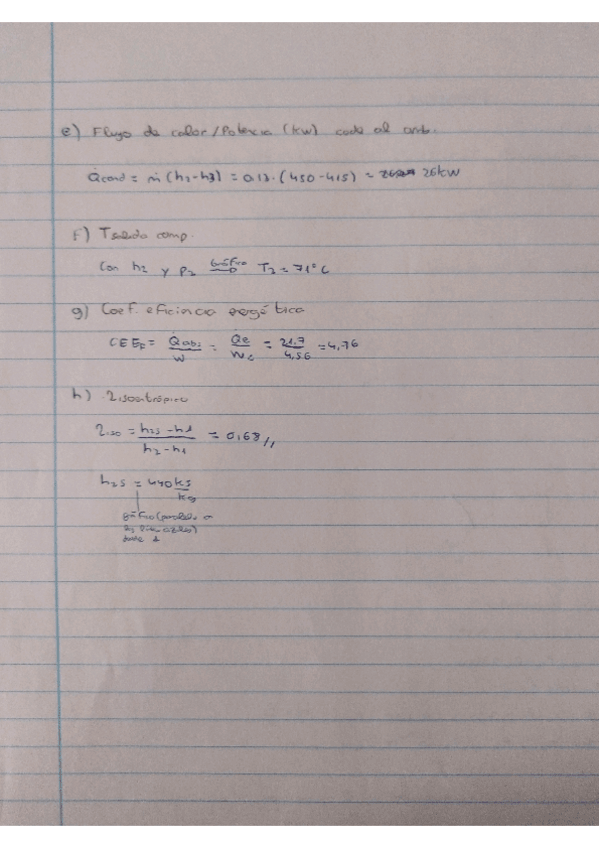 e) Flujo de calor/Potencia (kw) cede al amb.
Q̇cond = ṁ (h2-h3) = 0,13·(450-415) = 26kW
F) Tsalida comp.
Con h2 y P2 gráfico T2 = 71°C
g) Coef. eficiencia energética
CEEF = Q̇abs / W = Q̇e / Wc = 21,7 / 4,56 = 4,76
h) ηisoentrópico
ηiso = h2s-h1 / h2-h1 = 0,68//
h2s = 440 kJ / kg
gráfico (paralelo a
desde 1